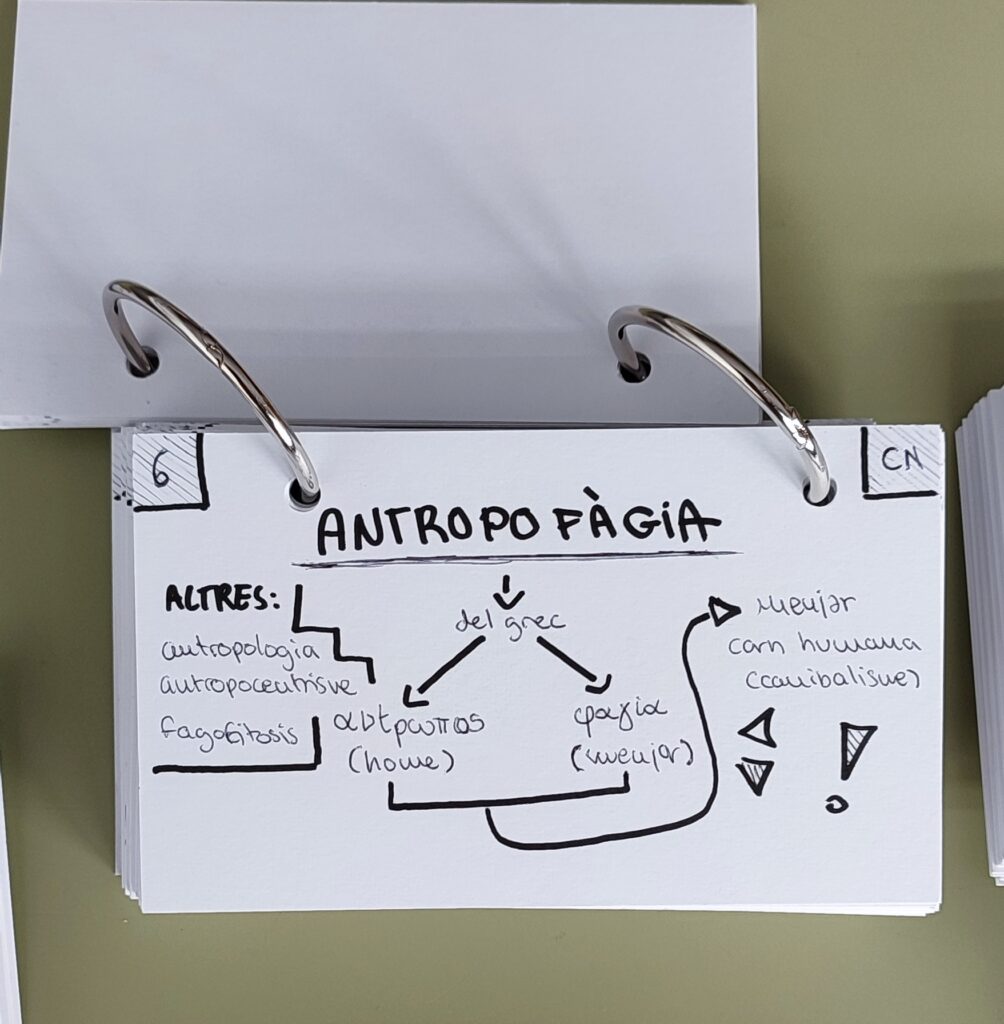 6
CN
ANTROPOFÀGIA
del grec
ALTRES:
antropologia
antropocentrisme
fagocitosis
αντρωπος
(home)
φαγια
(menjar)
menjar
carn humana
(canibalisme)
!